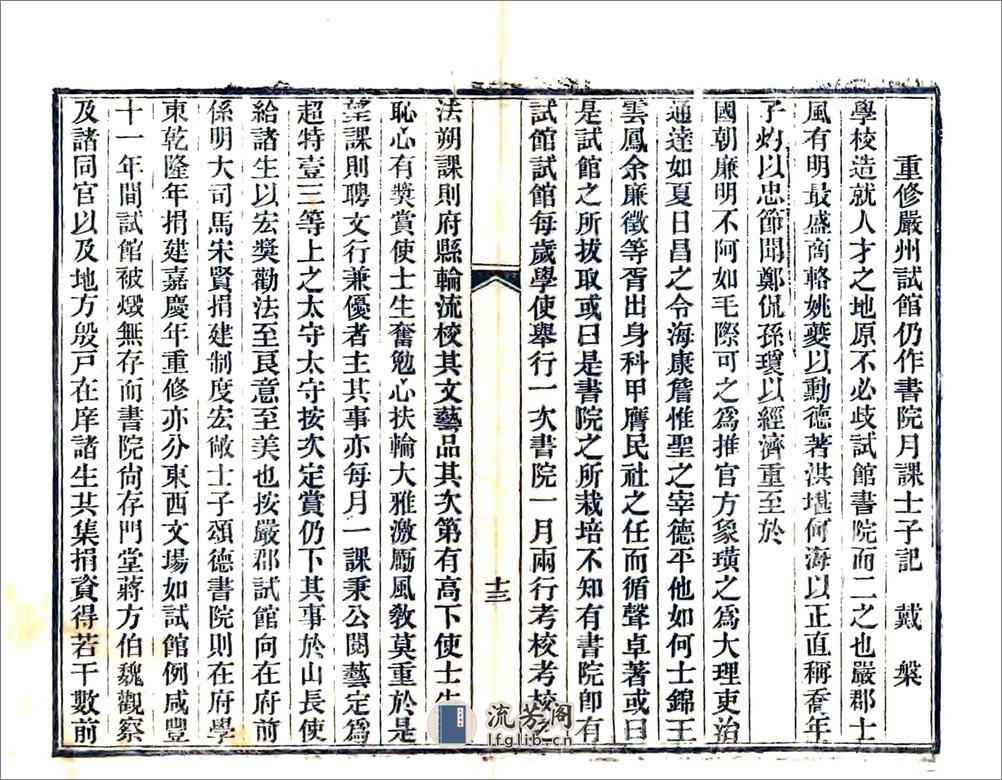 重修嚴州試館仍作書院月課士子記　戴　槃
學校造就人才之地原不必歧試館書院而二之也嚴郡士
風有明最盛商輅姚夔以勳德著洪堪何海以正直稱喬年
子灼以忠節聞鄭侃孫瓊以經濟重至於
國朝廉明不阿如毛際可之爲推官方象璜之爲大理吏治
通達如夏日昌之令海康詹惟聖之宰德平他如何士錦王
雲鳳余廉徵等胥出身科甲膺民社之任而循聲卓著或曰
是試館之所拔取或曰是書院之所栽培不知有書院即有
試館試館每歲學使舉行一次書院一月兩行考校考校之
十三
法朔課則府縣輪流校其文藝品其次第有高下使士生
恥心有獎賞使士生奮勉心扶輪大雅激勵風敎莫重於是
望課則聘文行兼優者主其事亦每月一課秉公閱藝定爲
超特壹三等上之太守太守按次定賞仍下其事於山長使
給諸生以宏獎勸法至良意至美也按嚴郡試館向在府前
係明大司馬宋賢捐建制度宏敞士子頌德書院則在府學
東乾隆年捐建嘉慶年重修亦分東西文場如試館例咸豐
十一年間試館被燬無存而書院尙存門堂蔣方伯魏觀察
及諸同官以及地方殷戸在庠諸生其集捐資得若干數前
流芳閣
lfglib.cn